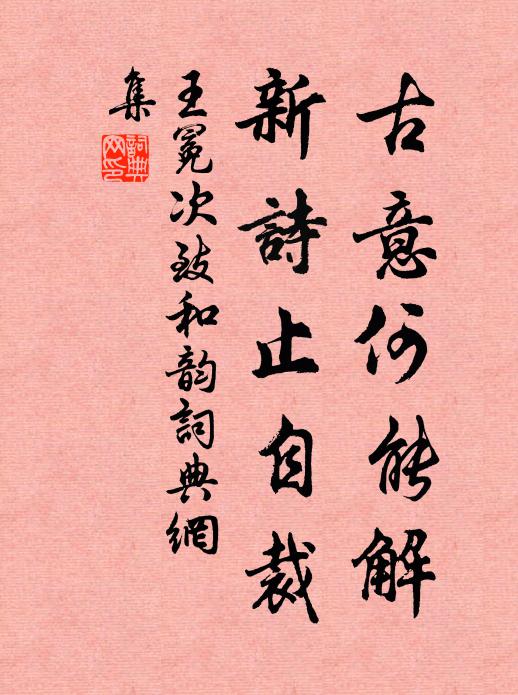 古意何能解
新詩止自裁
王冕次致和韵詞典網
集
詞典
网印